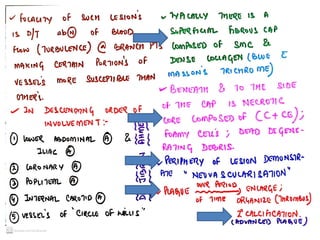 ✓ FOCALITY OF SUCH LESION'S
IS D/T abN OF BLOOD
FLOW (TURBULENCE) @ BRANCH PTS
MAKING CERTAIN PORTION'S OF
VESSEL'S MORE SUSCEPTIBLE THAN
OTHER'S.
✓ IN DESCENDING ORDER OF
INVOLVEMENT :-
① LOWER ABDOMINAL Ⓐ &
ILIAC Ⓐ
② CORONARY Ⓐ
③ POPLITEAL Ⓐ
④ INTERNAL CAROTID Ⓐ
⑤ VESSEL'S OF "CIRCLE OF WILLIS"
✓ TYPICALLY THERE IS A
SUPERFICIAL FIBROUS CAP
COMPOSED OF SMC &
DENSE COLLAGEN (BLUE C̄
MASSON'S TRICHROME)
✓ BENEATH & TO THE SIDE
OF THE CAP IS NECROTIC
CORE COMPOSED OF (C + CE) ;
FOAMY CELL'S ; DEAD DEGENE-
RATING DEBRIS.
✓ PERIPHERY OF LESION DEMONSTR-
ATE "NEOVASCULARISATION"
✓ PLAQUE OVER PERIOD OF TIME → ENLARGE ;
ORGANIZE (THROMBUS)
& CALCIFICATION.
(ADVANCED PLAQUE)